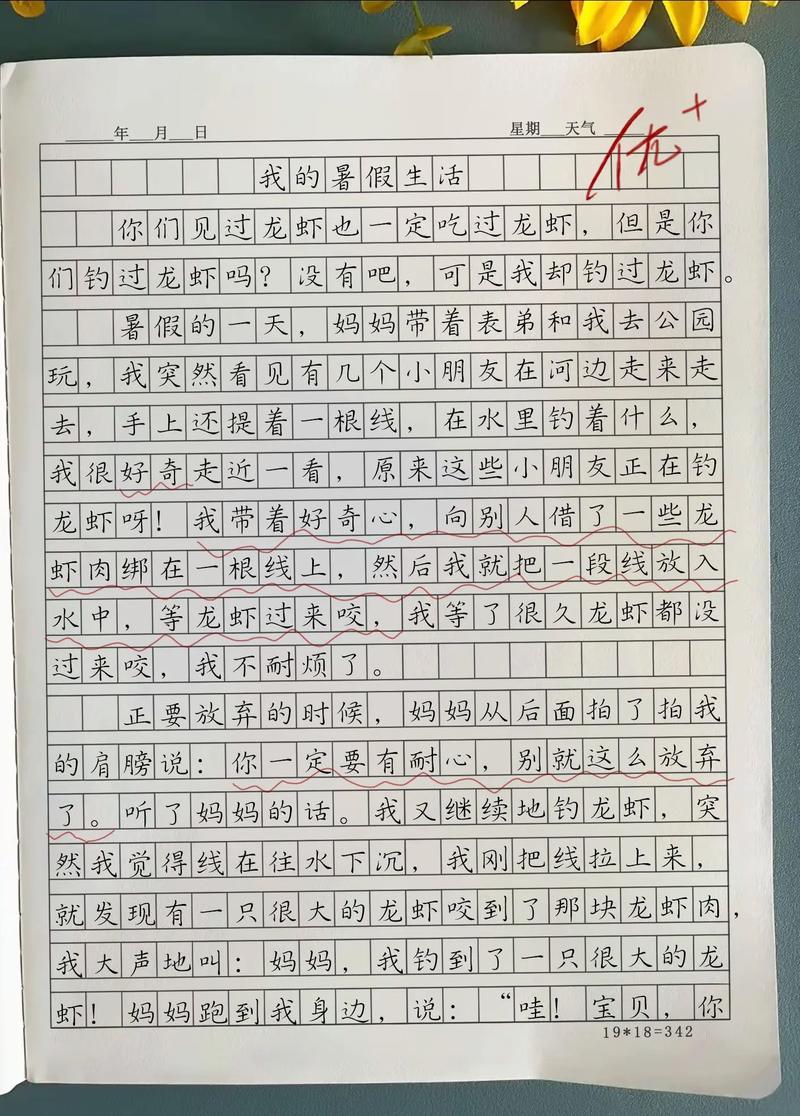 年 月 日 星期 天气
优+
我的暑假生活
你们见过龙虾也一定吃过龙虾，但是你
们钓过龙虾吗？没有吧，可是我却钓过龙虾。
暑假的一天，妈妈带着表弟和我去公园
玩，我突然看见有几个小朋友在河边走来走
去，手上还提着一根线，在水里钓着什么，
我很好奇走近一看，原来这些小朋友正在钓
龙虾呀！我带着好奇心，向别人借了一些龙
虾肉绑在一根线上，然后我就把一段线放入
水中，等龙虾过来咬，我等了很久龙虾都没
过来咬，我不耐烦了。
正要放弃的时候，妈妈从后面拍了拍我
的肩膀说：你一定要有耐心，别就这么放弃
了。听了妈妈的话。我又继续地钓龙虾，突
然我觉得线在往水下沉，我刚把线拉上来，
就发现有一只很大的龙虾咬到了那块龙虾肉，
我大声地叫：妈妈，我钓到了一只很大的龙
虾！妈妈跑到我身边，说：“哇！宝贝，你
19*18=342